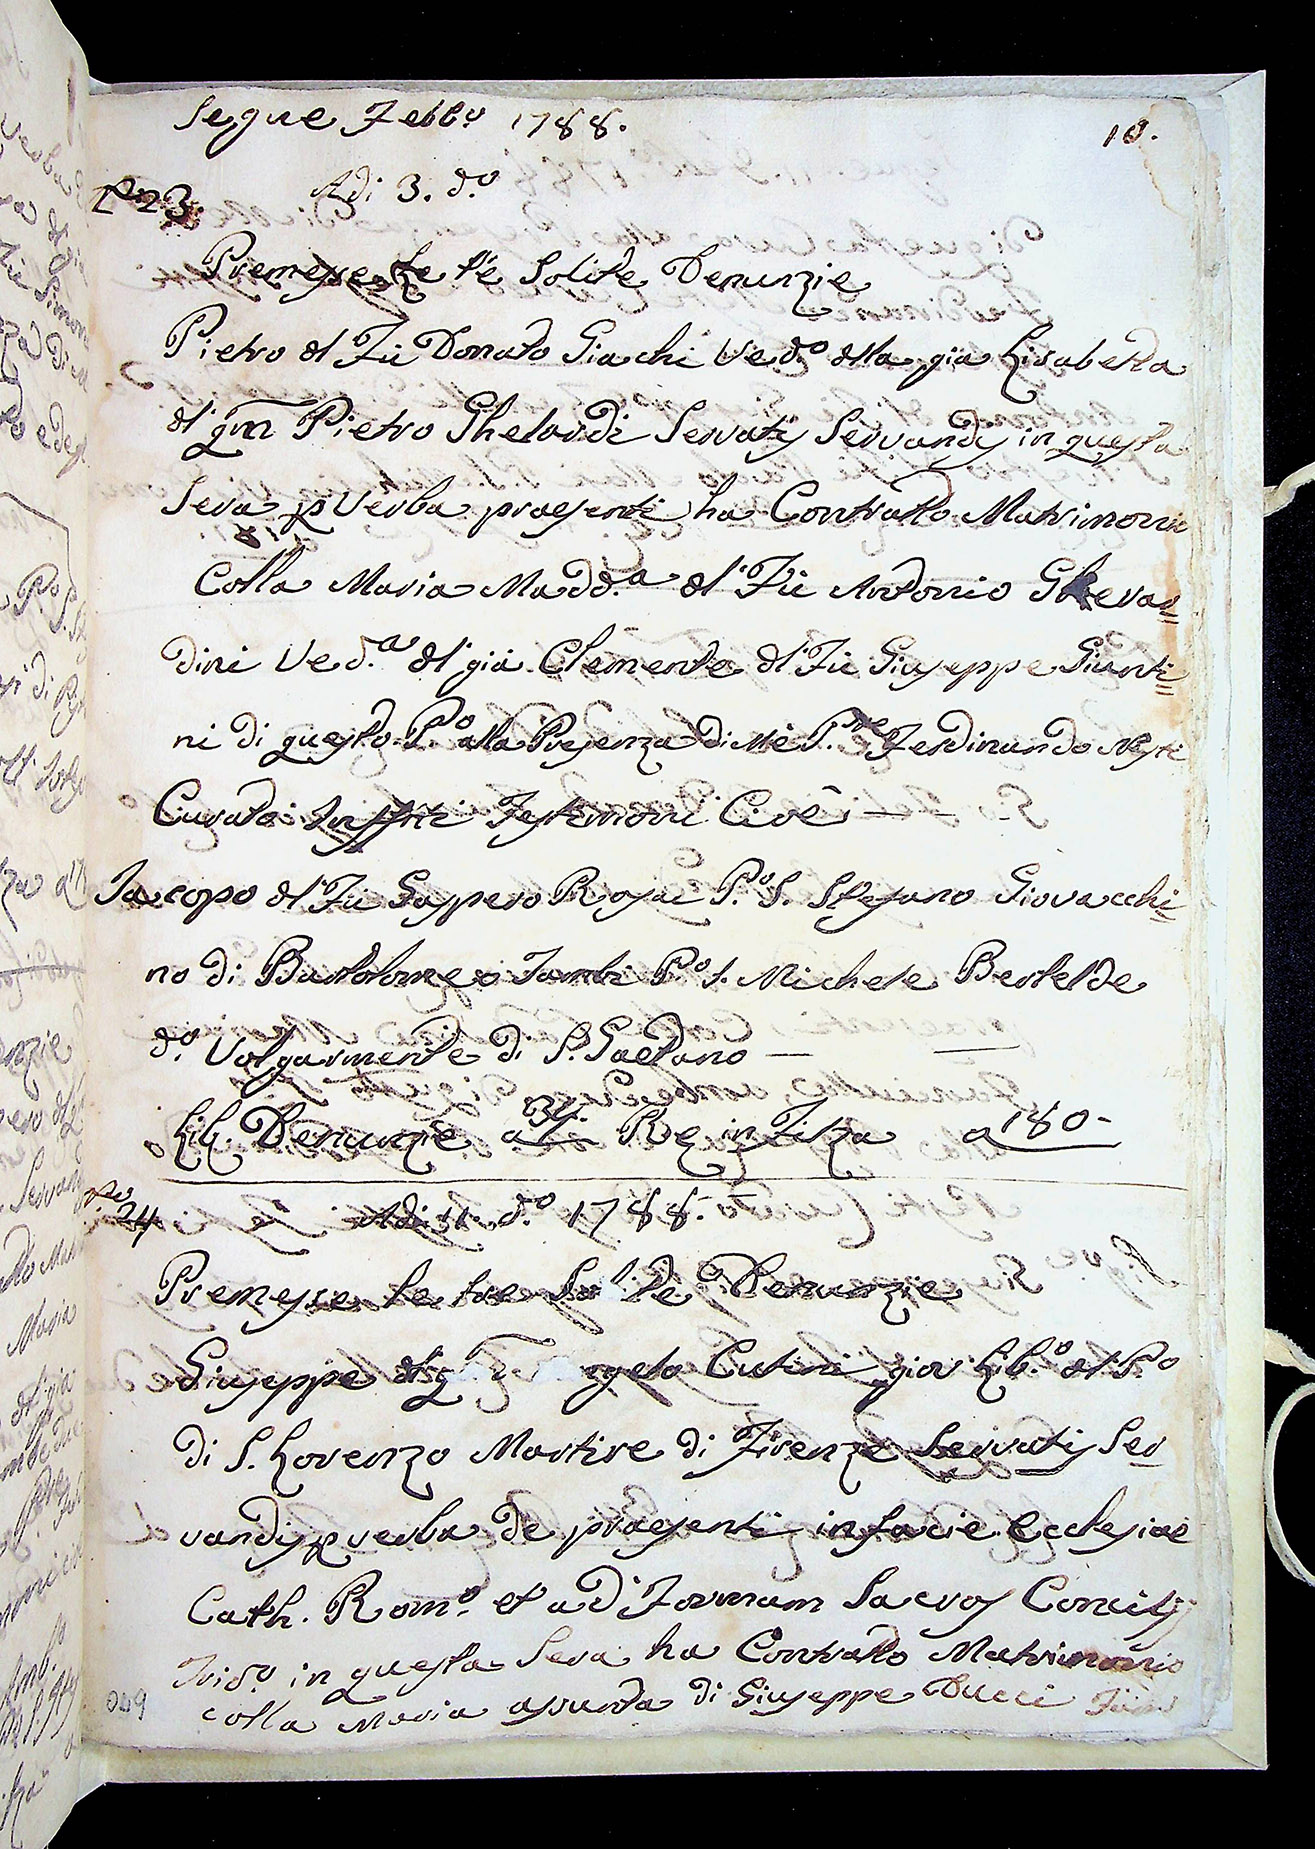 Segue Febb.o 1788.
10.
N.o 23.
Adi 3. d.o
Premesse le Solite Denunzie
Pietro dl Fù Donato Giachi Ved.o dlla già Lisabetta
dl qm Pietro Ghelardi Servatis Servandis in questa
Sera p Verba praesenti ha Contratto Matrimoni
Colla Maria Madd.a dl Fù Antonio Gherar=
dini Ved.a dl già Clemente dl Fù Giuseppe Giunti=
ni di questo P.o alla Presenza di Me P. Ferdinando
Curato Testimoni Cioè
Jacopo dl Fù Gasppero Rosai P.o S. Stefano Giovacchi=
no di Bartolomeo P.o S. Michele Bertelde
d.o Volgarmente di S. Gaetano
Lib. Denunzie a 34. Re in Filza a 180
N.o 24
Adi 11. d.o 1788.
Premesse le tre Sol.te Denunzie
Giuseppe dl Cutini giov Lib.o dl P.o
di S. Lorenzo Martire di Firenze Servatis Ser
vandis p verba de praesenti in facie Ecclesiae
Cath. Rom.e et ad Formam Sacros Concilij
Trid.o in questa Sera ha Contratto Matrimonio
colla Maria assunta di Giuseppe Ducci
049